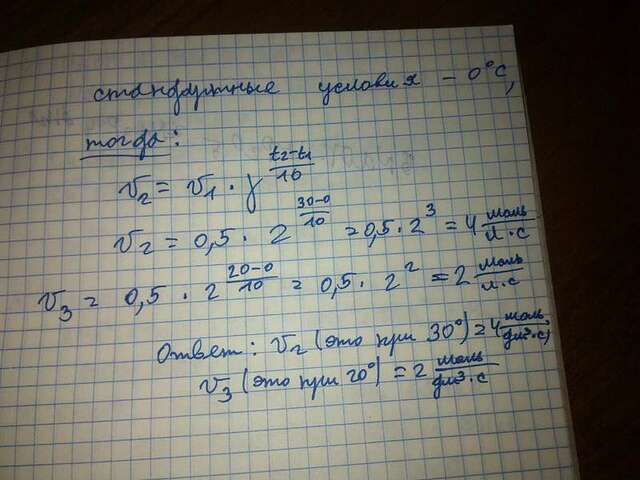 стандартные условия - 0°С,
тогда:
v₂ = v₁ · γ^((t₂-t₁)/10)
v₂ = 0,5 · 2^((30-0)/10) = 0,5 · 2³ = 4 моль/л·с
v₃ = 0,5 · 2^((20-0)/10) = 0,5 · 2² = 2 моль/л·с
Ответ: v₂ (это при 30°) = 4 моль/дм³·с)
v₃ (это при 20°) = 2 моль/дм³·с